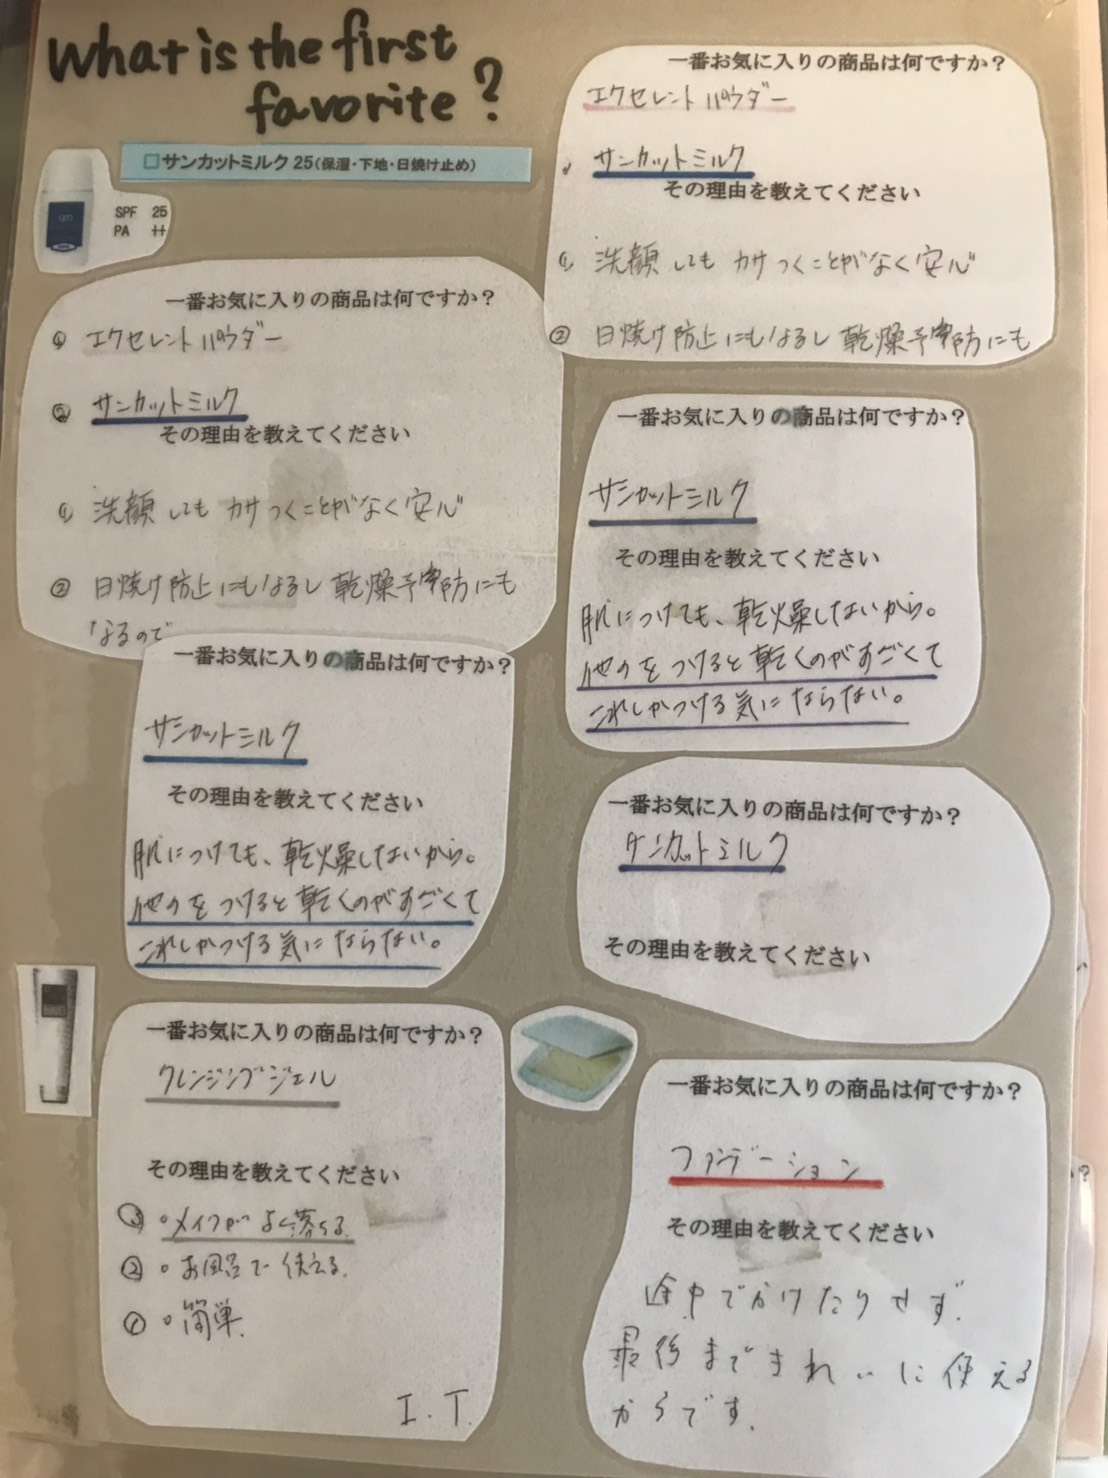 What is the first
favorite?
□サンカットミルク 25(保湿・下地・日焼け止め)
SPF 25
PA ++
一番お気に入りの商品は何ですか?
エクセレントパウダー
サンカットミルク
その理由を教えてください
① 洗顔してもカサつくことがなく安心
② 日焼け防止にもなるし乾燥予防にも
一番お気に入りの商品は何ですか?
① エクセレントパウダー
② サンカットミルク
その理由を教えてください
① 洗顔してもカサつくことがなく安心
② 日焼け防止にもなるし乾燥予防にも
なるので
一番お気に入りの商品は何ですか?
サンカットミルク
その理由を教えてください
肌につけても、乾燥しないから。
他のをつけると乾くのがすごくて
これしかつける気にならない。
一番お気に入りの商品は何ですか?
サンカットミルク
その理由を教えてください
肌につけても、乾燥しないから。
他のをつけると乾くのがすごくて
これしかつける気にならない。
一番お気に入りの商品は何ですか?
サンカットミルク
その理由を教えてください
一番お気に入りの商品は何ですか?
クレンジングジェル
その理由を教えてください
③ ○メイクがよく落ちる.
② ○お風呂で使える.
① ○簡単.
I.T.
一番お気に入りの商品は何ですか?
ファンデーション
その理由を教えてください
途中でかけたりせず.
最後まできれいに使える
からです.
?